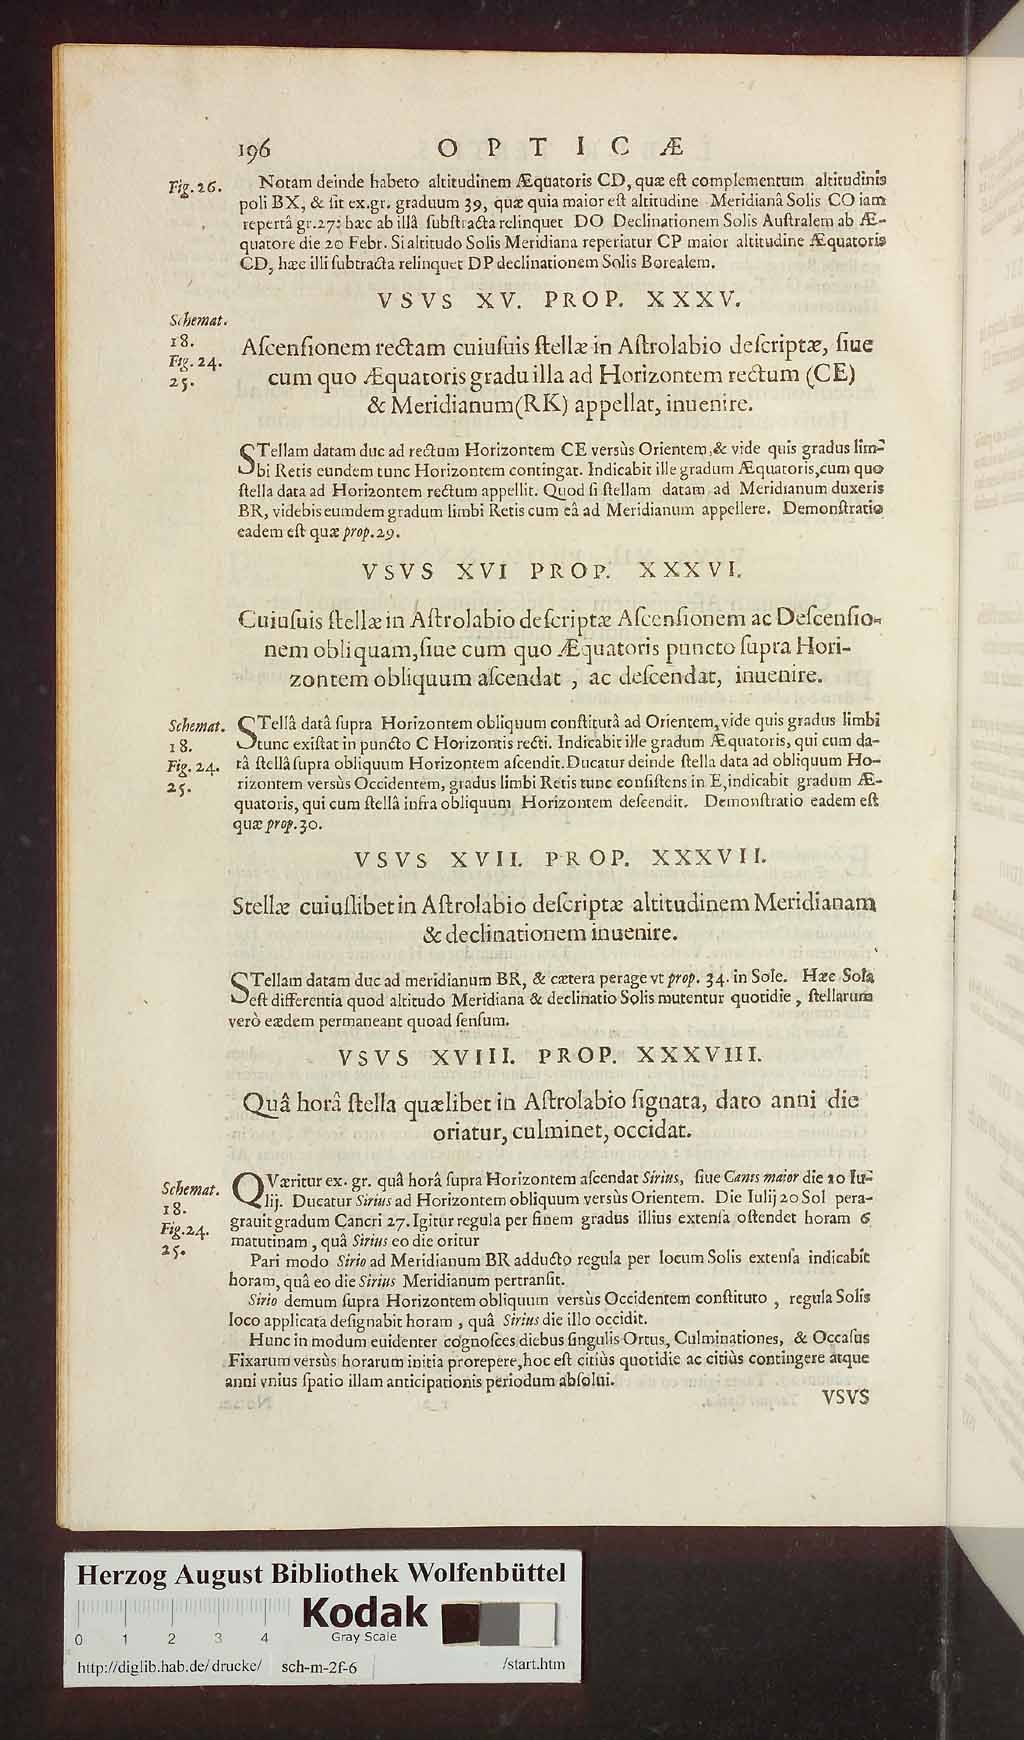 196 OPTICÆ
Fig. 26.
Notam deinde habeto altitudinem Æquatoris CD, quæ eſt complementum altitudinis
poli BX, & ſit ex. gr. graduum 39, quæ quia maior eſt altitudine Meridianâ Solis CO iam
repertâ gr. 27: hæc ab illâ ſubſtracta relinquet DO Declinationem Solis Auſtralem ab Æ-
quatore die 20 Febr. Si altitudo Solis Meridiana reperiatur CP maior altitudine Æquatoris
CD, hæc illi ſubtracta relinquet DP declinationem Solis Borealem.
VSVS XV. PROP. XXXV.
Schemat.
18.
Fig. 24.
25.
Aſcenſionem rectam cuiuſuis ſtellæ in Aſtrolabio deſcriptæ, ſiue
cum quo Æquatoris gradu illa ad Horizontem rectum (CE)
& Meridianum (RK) appellat, inuenire.
STellam datam duc ad rectum Horizontem CE versùs Orientem, & vide quis gradus lim-
bi Retis eundem tunc Horizontem contingat. Indicabit ille gradum Æquatoris, cum quo
ſtella data ad Horizontem rectum appellit. Quod ſi ſtellam datam ad Meridianum duxeris
BR, videbis eumdem gradum limbi Retis cum eâ ad Meridianum appellere. Demonſtratio
eadem eſt quæ prop. 29.
VSVS XVI PROP. XXXVI.
Cuiuſuis ſtellæ in Aſtrolabio deſcriptæ Aſcenſionem ac Deſcenſio-
nem obliquam, ſiue cum quo Æquatoris puncto ſupra Hori-
zontem obliquum aſcendat, ac deſcendat, inuenire.
Schemat.
18.
Fig. 24.
25.
STellâ datâ ſupra Horizontem obliquum conſtitutâ ad Orientem, vide quis gradus limbi
tunc exiſtat in puncto C Horizontis recti. Indicabit ille gradum Æquatoris, qui cum da-
tâ ſtellâ ſupra obliquum Horizontem aſcendit. Ducatur deinde ſtella data ad obliquum Ho-
rizontem versùs Occidentem, gradus limbi Retis tunc conſiſtens in E, indicabit gradum Æ-
quatoris, qui cum ſtellâ infra obliquum Horizontem deſcendit. Demonſtratio eadem eſt
quæ prop. 30.
VSVS XVII. PROP. XXXVII.
Stellæ cuiuſlibet in Aſtrolabio deſcriptæ altitudinem Meridianam
& declinationem inuenire.
STellam datam duc ad meridianum BR, & cætera perage vt prop. 34. in Sole. Hæc Sola
eſt differentia quod altitudo Meridiana & declinatio Solis mutentur quotidie, ſtellarum
verò eædem permaneant quoad ſenſum.
VSVS XVIII. PROP. XXXVIII.
Quâ horâ ſtella quælibet in Aſtrolabio ſignata, dato anni die
oriatur, culminet, occidat.
Schemat.
18.
Fig. 24.
25.
QVæritur ex. gr. quâ horâ ſupra Horizontem aſcendat Sirius, ſiue Canis maior die 20 Iu-
lij. Ducatur Sirius ad Horizontem obliquum versùs Orientem. Die Iulij 20 Sol pera-
grauit gradum Cancri 27. Igitur regula per finem gradus illius extenſa oſtendet horam 6
matutinam, quâ Sirius eo die oritur
Pari modo Sirio ad Meridianum BR adducto regula per locum Solis extenſa indicabit
horam, quâ eo die Sirius Meridianum pertranſit.
Sirio demum ſupra Horizontem obliquum versùs Occidentem conſtituto, regula Solis
loco applicata deſignabit horam, quâ Sirius die illo occidit.
Hunc in modum euidenter cognoſces diebus ſingulis Ortus, Culminationes, & Occaſus
Fixarum versùs horarum initia prorepere, hoc eſt citiùs quotidie ac citiùs contingere atque
anni vnius ſpatio illam anticipationis periodum abſolui.
VSVS
Herzog August Bibliothek Wolfenbüttel
Kodak
0 1 2 3 4 Gray Scale
http://diglib.hab.de/drucke/ sch-m-2f-6 /start.htm